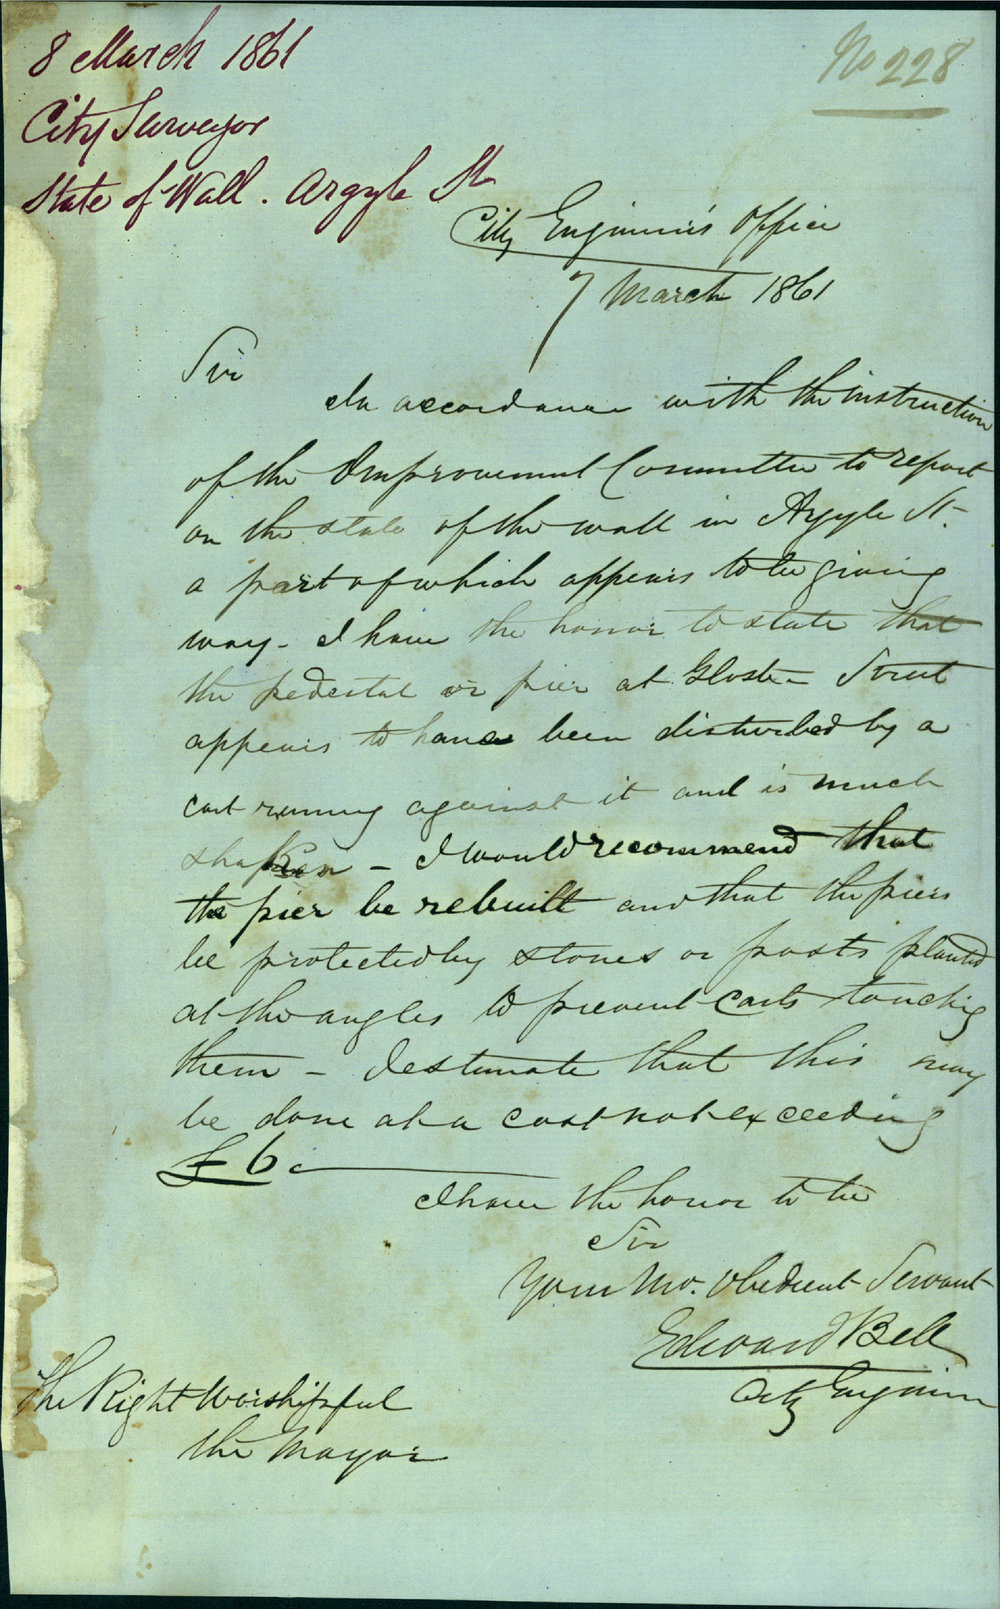 8 March 1861
No 228
City Surveyor
State of Wall. Argyle St
City Engineer's Office
7 March 1861
Sir
In accordance with the instruction
of the Improvement Committee to report
on the state of the wall in Argyle St.
a part of which appears to be giving
way - I have the honor to state that
the pedestal or pier at Gloster Street
appears to have been disturbed by a
cart running against it and is much
shaken - I would recommend that
the pier be rebuilt and that the piers
be protected by stones or posts planted
at the angles to prevent carts touching
them - I estimate that this may
be done at a cost not exceeding
£6
I have the honor to be
Sir
Your Mo. Obedient Servant
Edward Bell
City Engineer
The Right Worshipful
the Mayor